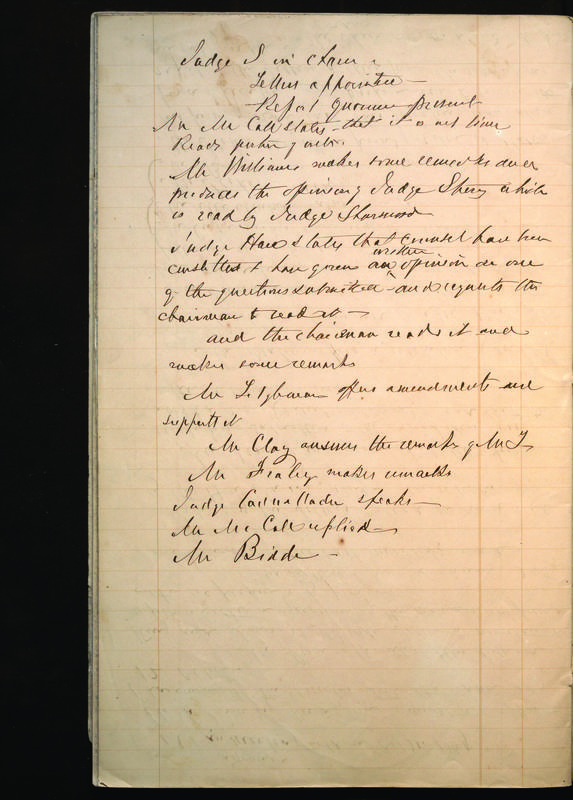 Judge S in chair
Tellers appointed —
Report quorum present
Mr Mc Call states that it is not
Ready
Mr Williams makes some remarks and
produces the opinion of Judge Sharswood which
is read by Judge Sharswood
Judge Hare states that counsel have been
consulted & have given an written opinion on one
of the questions submitted and requests the
chairman to read it —
and the chairman reads it and
makes some remarks
Mr offers amendments and
supports it
Mr Clay answers the remarks of Mr T
Mr Fraley makes remarks
Judge Cadwallader speaks —
Mr Mc Call replied —
Mr Biddle —